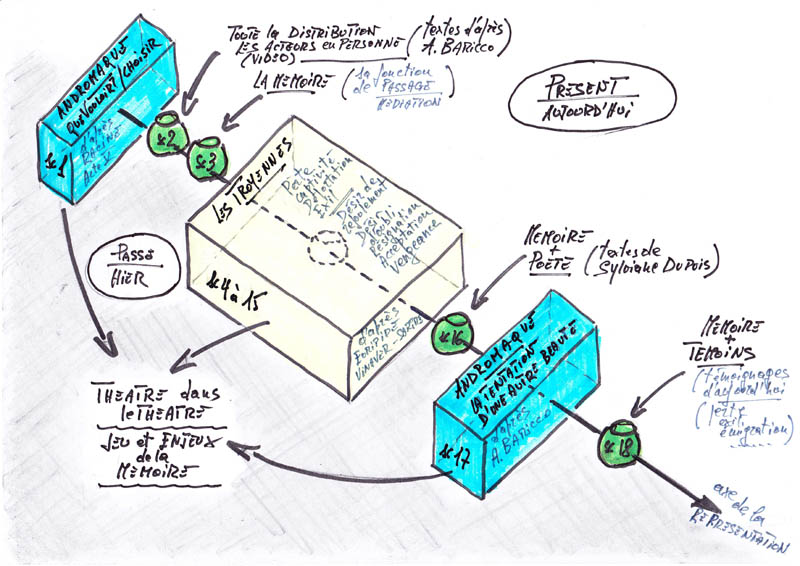 TOUTE la DISTRIBUTION
LES ACTEURS en PERSONNE
(VIDEO)
(textes d'après
A. BARICCO)
LA MEMOIRE
(sa fonction
de PASSAGE
MEDIATION)
PRESENT
AUJOURD'HUI
ANDROMAQUE
QUE VOULOIR?/CHOISIR
d'après
RACINE
Acte V
Sc 1
Sc 2
Sc 3
LES TROYENNES
Perte
captivité
Déportation
Exil
Désir de
Désir
d'oubli
Résignation
Acceptation
Vengeance
Sc 4 à 15
d'après
EURIPIDE
VINAVER-SARTRE
PASSÉ
HIER
MEMOIRE
+
POETE
(textes de
Sylviane DUPUIS)
Sc 16
ANDROMAQUE
LA TENTATION
D'UNE AUTRE BEAUTÉ
d'après
A. BARICCO
Sc 17
MEMOIRE
+
TEMOINS
(témoignages
d'aujourd'hui
(perte
exil
émigration)
Sc 18
THEATRE dans
le THEATRE
JEU et ENJEUX
de la
MEMOIRE
axe de la
REPRESENTATION